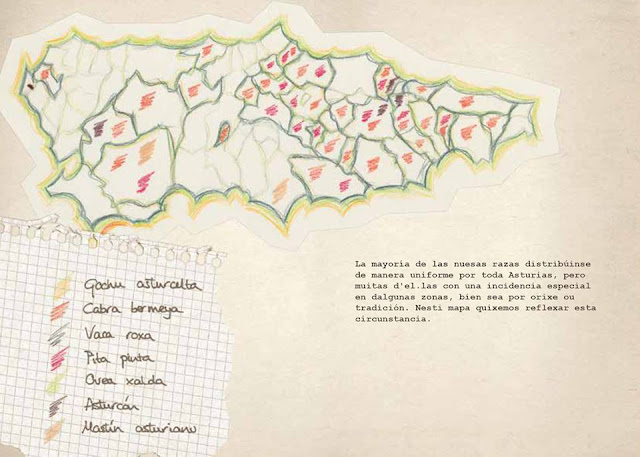 La mayoria de las nuesas razas distribúinse
de manera uniforme por toda Asturias, pero
muitas d'el.las con una incidencia especial
en dalgunas zonas, bien sea por orixe ou
tradición. Nesti mapa quixemos reflexar esta
circunstancia.
Gochu asturcelta
Cabra bermeya
Vaca roxa
Pita pinta
Ovea xalda
Asturcón
Mastín asturianu